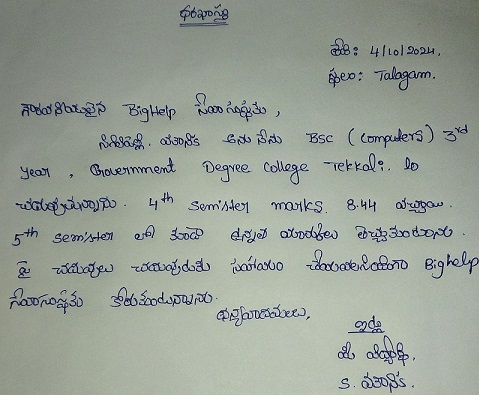 ధరఖాస్తు
తేది: 4/10/2024.
స్థలం: Talagam.
గౌరవనీయులైన BigHelp సేవా సంస్థకు,
యశానిక అను నేను BSC (computers) 3rd
year, Government Degree College Tekkali. lo
చదువుతున్నాను. 4th semister marks 8.44 వచ్చాయి.
5th semister లో కూడా ఉన్నత మార్కులు తెచ్చుకుంటాను.
పై చదువులు చదువుటకు సహాయం చేయవలసినదిగా Bighelp
సేవాసంస్థకు కోరుకుంటున్నాను.
ధన్యవాదములు,
ఇట్లు
మీ విద్యార్థి,
S.